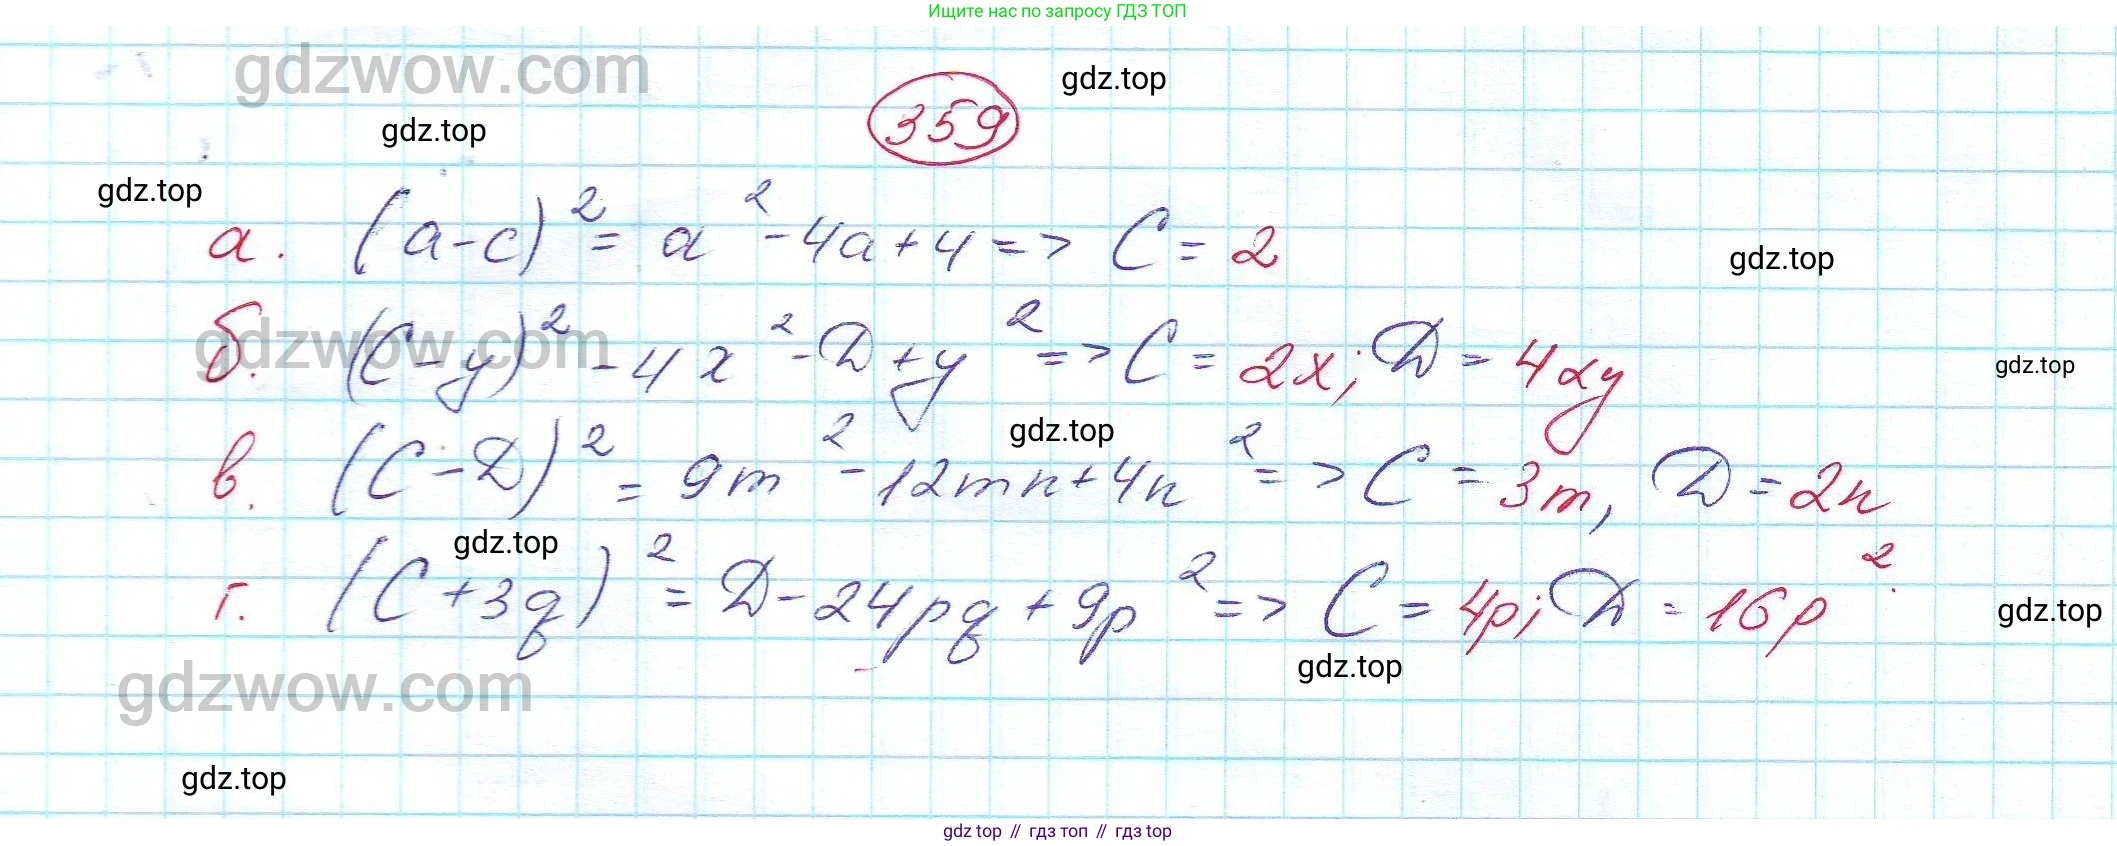 Ищите нас по запросу ГДЗ ТОП
gdzwow.com
gdz.top
359
gdz.top
gdz.top
а. (a-c)² = a² - 4a + 4 => C = 2
gdz.top
gdzwow.com
б. (C-y)² - 4x² - D + y² => C = 2x; D = 4xy
gdz.top
gdz.top
в. (C-D)² = 9m² - 12mn + 4n² => C = 3m, D = 2n
gdz.top
г. (C+3q)² = D - 24pq + 9p² => C = 4p; D = 16p².
gdz.top
gdz.top
gdzwow.com
gdz.top
gdz top // гдз топ // gdz top